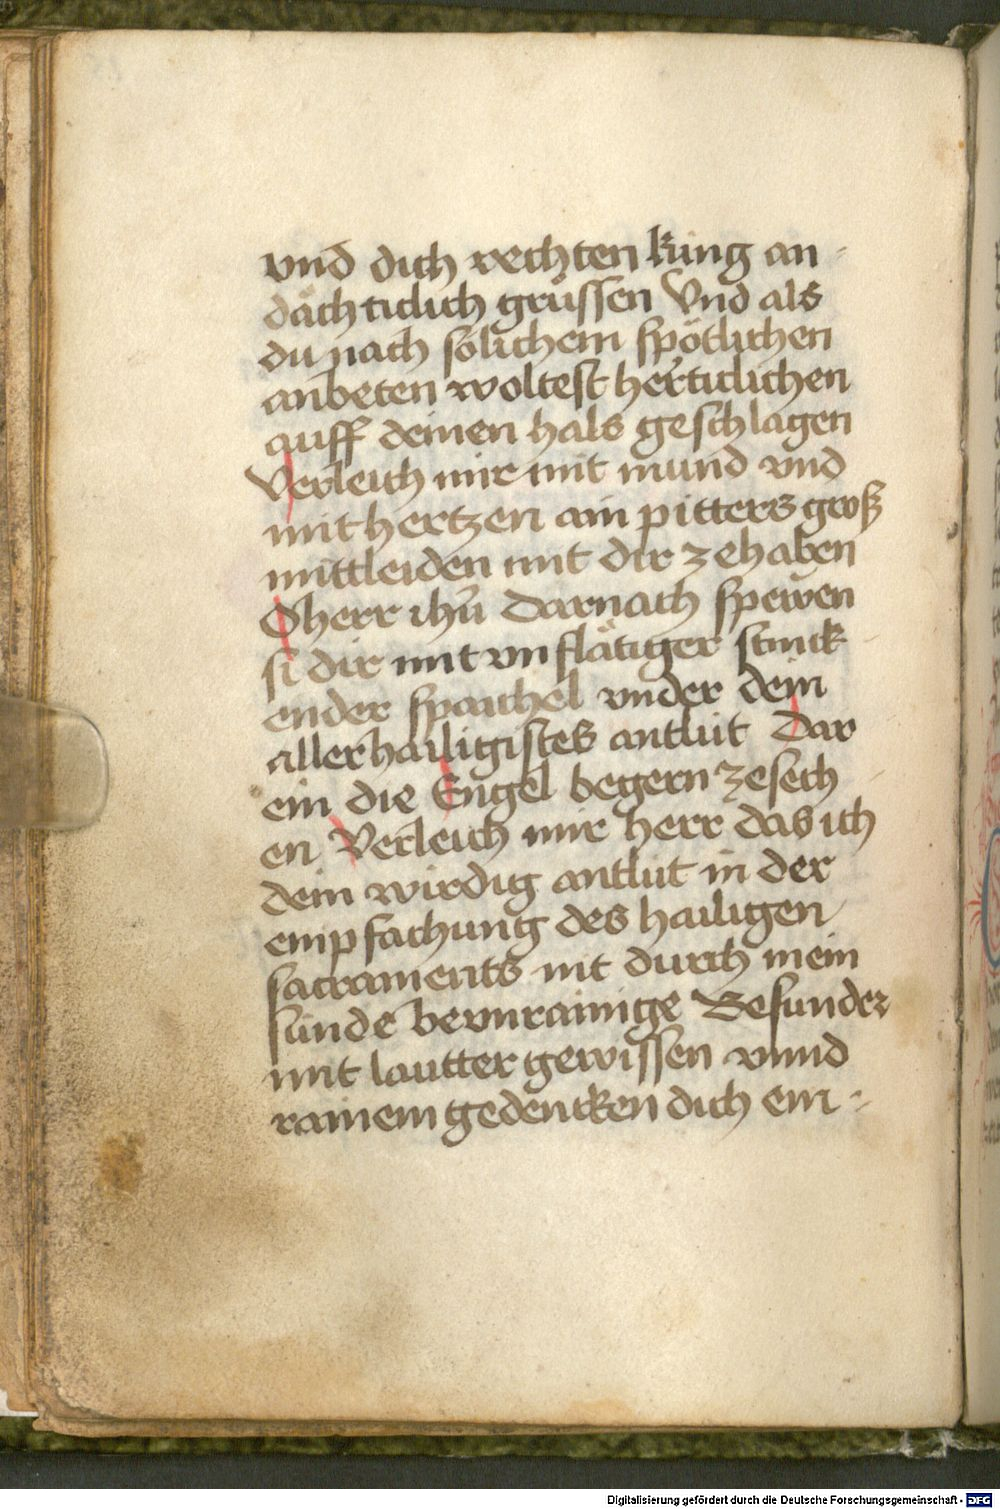 vnd dich rechten kung an-
dächticlich grüssen Vnd als
du nach sölichem spötlichen
anbeten woltest herticlichen
auff deinen hals geschlagen
Verleich mir mit mund vnd
mit hertzen ain pitters groß
mittleiden mit dir zehaben
O herr ihū darnach speiten
si dir mit vnflätiger stinck-
ender spaichel vnder dein
allerhailigistes antlüt Dar
ein die Engel begern zesech-
en Verleich mir herr das ich
dein wirdig antlüt in der
empfachung des hailigen
sacraments nit durch mein
sünde bevnrainige Besunder
mit lautter gewissen vnnd
rainem gedencken dich ein-
Digitalisierung gefördert durch die Deutsche Forschungsgemeinschaft - DFG